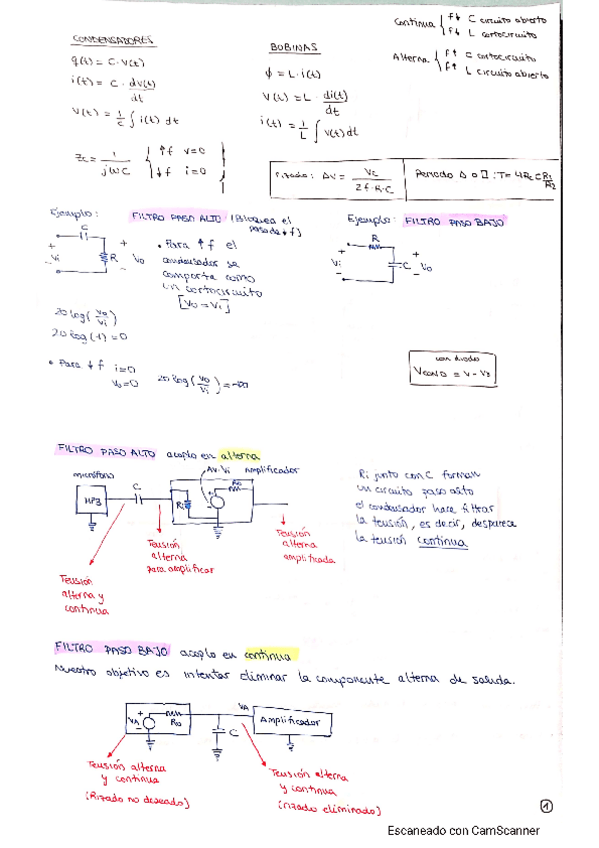 Continua { f↓ C circuito abierto
f↓ L cortocircuito
Alterna { f↑ C cortocircuito
f↑ L circuito abierto
CONDENSADORES
q(t) = C · V(t)
i(t) = C · dV(t)/dt
V(t) = 1/C ∫ i(t) dt
Zc = 1/jωC { ↑f v=0
↓f i=0
BOBINAS
ϕ = L · i(t)
V(t) = L · di(t)/dt
i(t) = 1/L ∫ V(t) dt
rizado: ΔV = Vc/2f·R·C
Periodo Δ o ⊓ : T = 4RcC R1/R2
Ejemplo: FILTRO PASO ALTO (Bloquea el
paso de ↓f)
C
+ Vi -
R
+ Vo -
• Para ↑f el
condensador se
comporta como
un cortocircuito
[Vo = Vi]
20 log (Vo/Vi)
20 log (1) = 0
• Para ↓f i=0
Vo=0 20 log (Vo/Vi) = -∞
Ejemplo: FILTRO PASO BAJO
R
+ Vi -
C
+ Vo -
con diodos
= V - Vγ
FILTRO PASO ALTO acoplo en alterna
micrófono
MP3
C
Av·Vi Amplificador
Ri
Ro
Tensión
alterna y
continua
Tensión
alterna
para amplificar
Tensión
alterna
amplificada
Ri junto con C forman
un circuito paso alto
el condensador hace filtrar
la tensión, es decir, desparece
la tensión continua
FILTRO PASO BAJO acoplo en continua
Nuestro objetivo es intentar eliminar la componente alterna de salida.
VA
Ro
VA
C
Amplificador
Tensión alterna
y continua
(Rizado no deseado)
Tensión alterna
y continua
(rizado eliminado)
1
Escaneado con CamScanner